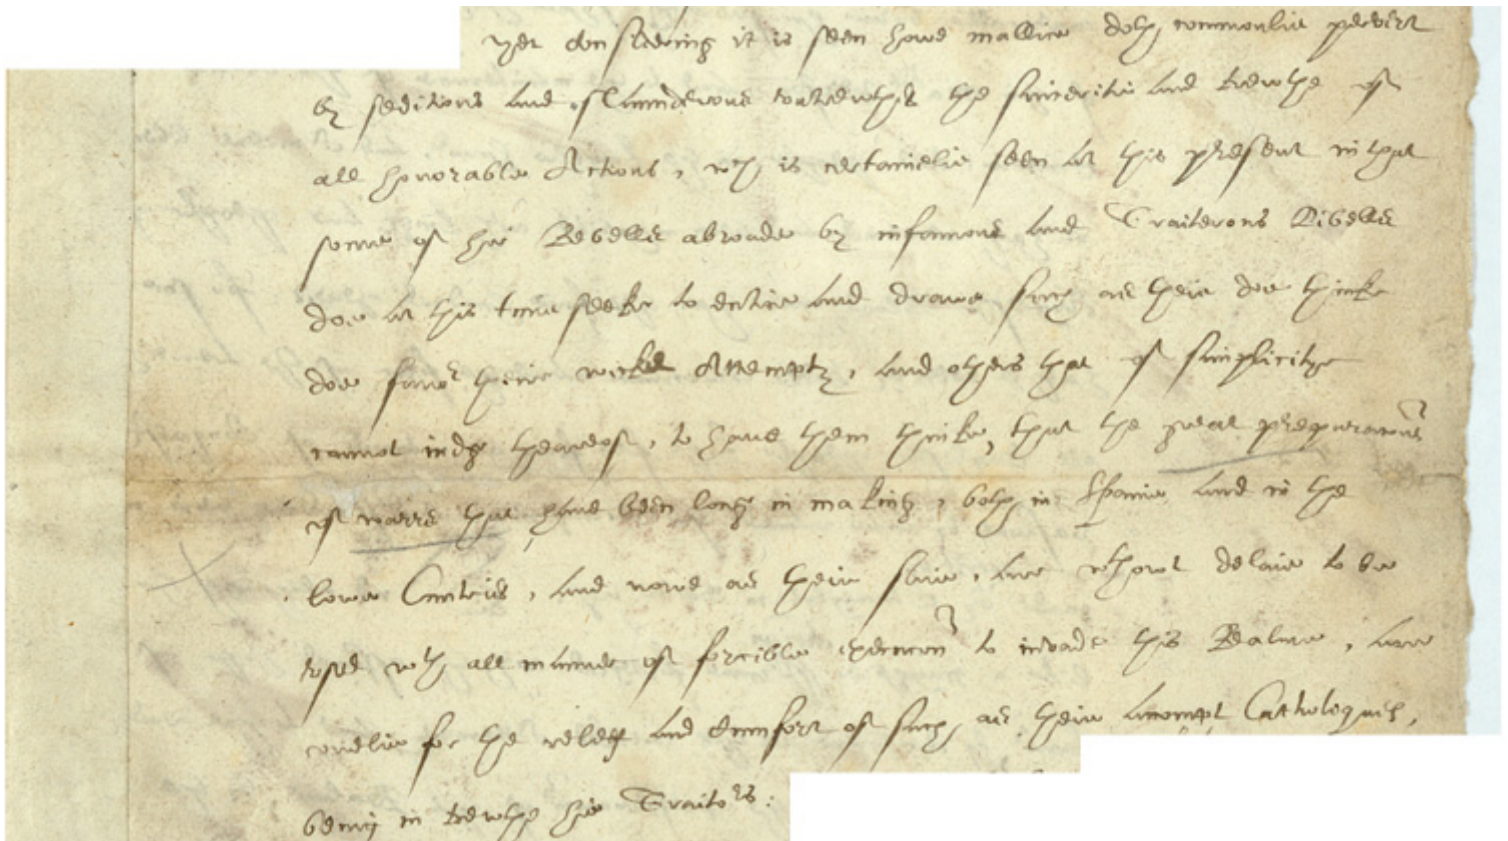 yet considering it is seen howe mallice doth commonlie pervert
by seditious and slaunderous untrewthes the sinceritie and trewthe of
all honorable Actions, wch is certainelie seen at this present in that
some of hir Rebells abroade by infamous and Traiterous Libells
doe at this time seeke to entice and drawe such as theie doe thinke
doe favor theire wicked Attempts, and others that of simplicitye
cannot iudge theareof, to have them thinke, that the great preparacons
of warre that have been long in making, both in Spaine and in the
lowe Cuntries, and nowe as theie saie, are wthout delaie to be
used wth all manner of forcible execucon to invade this Realme, are
onelie for the releef and cumfort of such as theie accompt Catholeques,
being in trewthe hir Traitors: